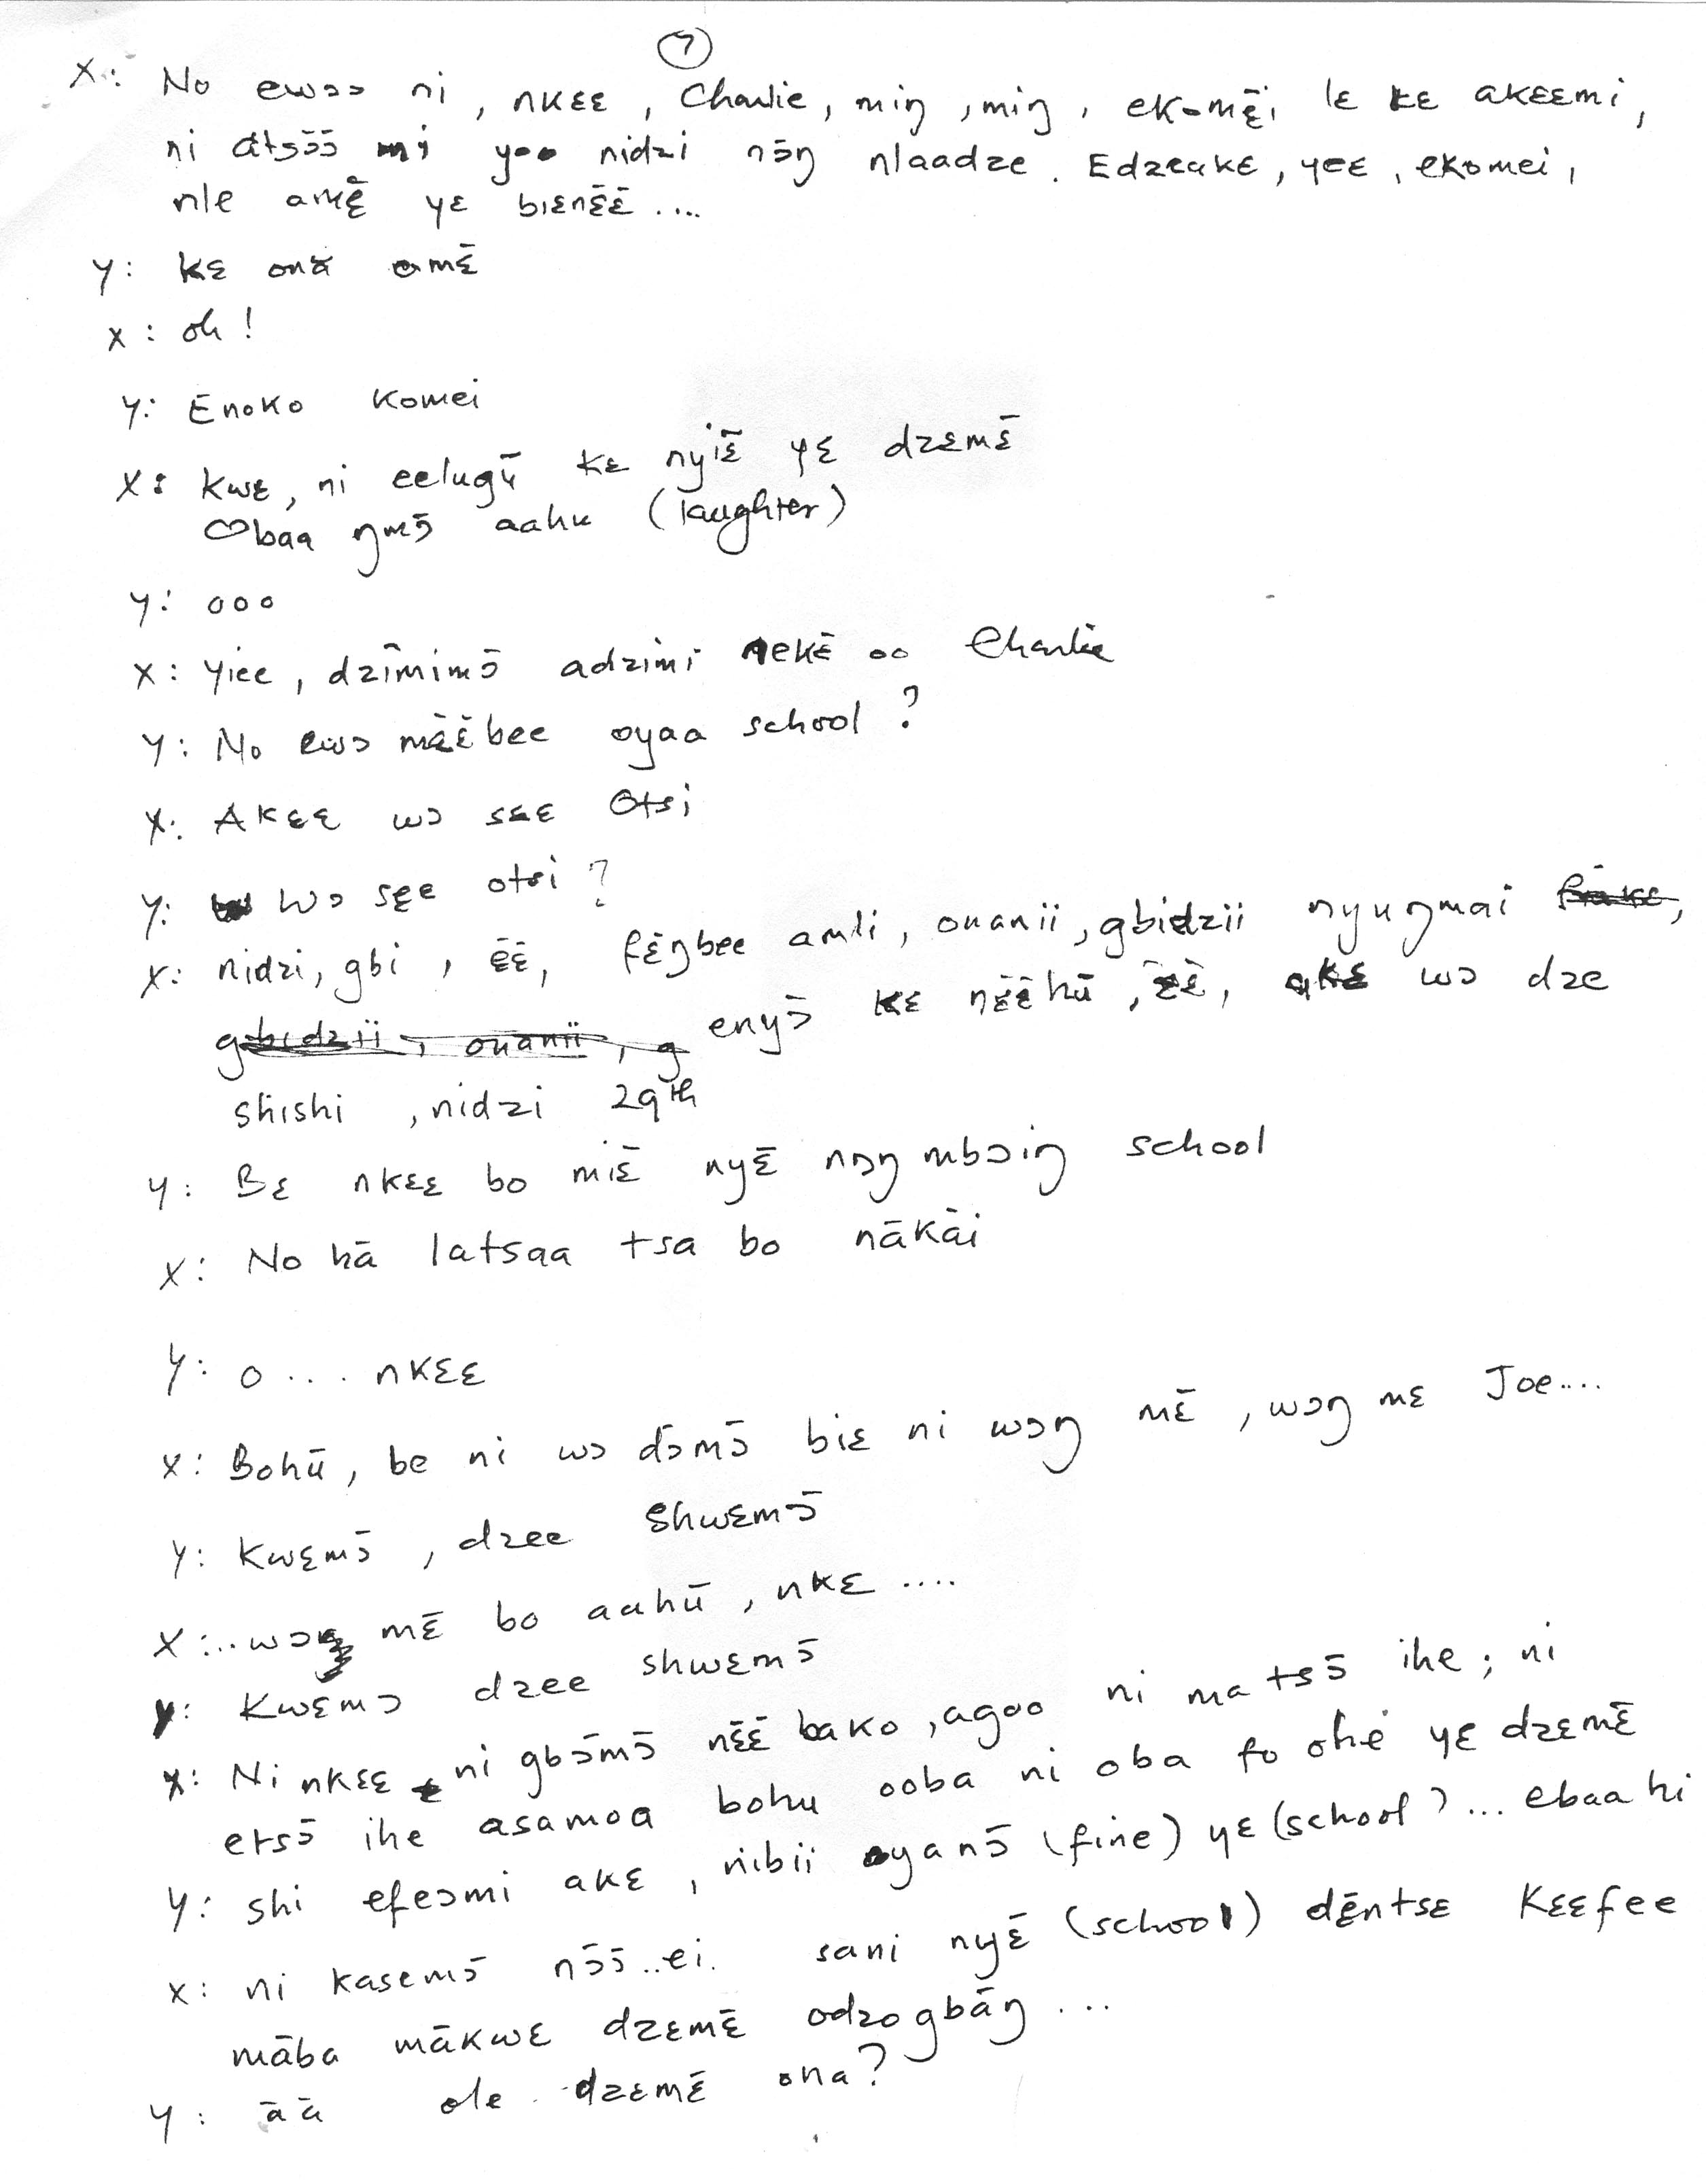 7
X: No ewɔɔ ni, nkɛɛ, Charlie, miŋ, miŋ, ekomɛ̄i lɛ kɛ akɛɛmi,
ni átsɔ̄ɔ̄ mi yoo nidzi nɔ̄ŋ nlaadze. Edzeakɛ, yee, ekomei,
nle amɛ̄ yɛ biɛnɛ̄ɛ̄....
Y: kɛ onā amɛ̄
X: oh!
Y: Enoko komei
X: Kwɛ, ni eelugū kɛ nyiɛ̄ yɛ dzɛmɛ̄
Obaa ŋmɔ̄ aahu (laughter)
Y: ooo
X: Yiee, dzīmimɔ̄ adzimi nekɛ̄ oo Charlie
Y: No ewɔ mɛ̀ɛ̀bee oyaa school?
X: Akɛɛ wɔ sɛɛ Otsi
Y: Wɔ sɛe otsi?
X: nidzi, gbi, ɛ̄ɛ̄, fɛ̄ŋbee amli, onanii, gbidzii nyuŋmai,
enyɔ̄ kɛ nɛ̄ɛ̄hū, ɛ̄ɛ̄, akɛ wɔ dze
shishi, nidzi 29th
Y: Bɛ nkɛɛ bo miɛ̄ nyɛ̄ nɔŋ mbɔiŋ school
X: No hā latsaa tsa bo nākāi
Y: o.... nkɛɛ
X: Bohū, be ni wɔ dɔ̄mɔ̄ biɛ ni wɔŋ mɛ̄, wɔŋ mɛ Joe....
Y: Kwɛmɔ̄, dzee Shwɛmɔ̄
X: ..wɔŋ mɛ̄ bo aahū, nkɛ ....
Y: Kwɛmɔ dzee shwɛmɔ̄
X: Ni nkɛɛ ni gbɔ̄mɔ̄ nɛ̄ɛ̄ bako, agoo ni ma tsɔ̄ ihe; ni
etsɔ̄ ihe asamoa bohu ooba ni oba fo ohe yɛ dzɛmɛ̄
Y: shi efeɔmi akɛ, nibii oyanɔ̄ (fine) yɛ (school) ... ebaa hi
X: ni kasemɔ̄ nɔ̄ɔ̄..ei. sani nyɛ̄ (school) dɛ̄ntsɛ Kɛɛfee
māba mākwɛ dzɛmɛ̄ odzogbāŋ ...
Y: āā ole dzɛmɛ̄ ona?